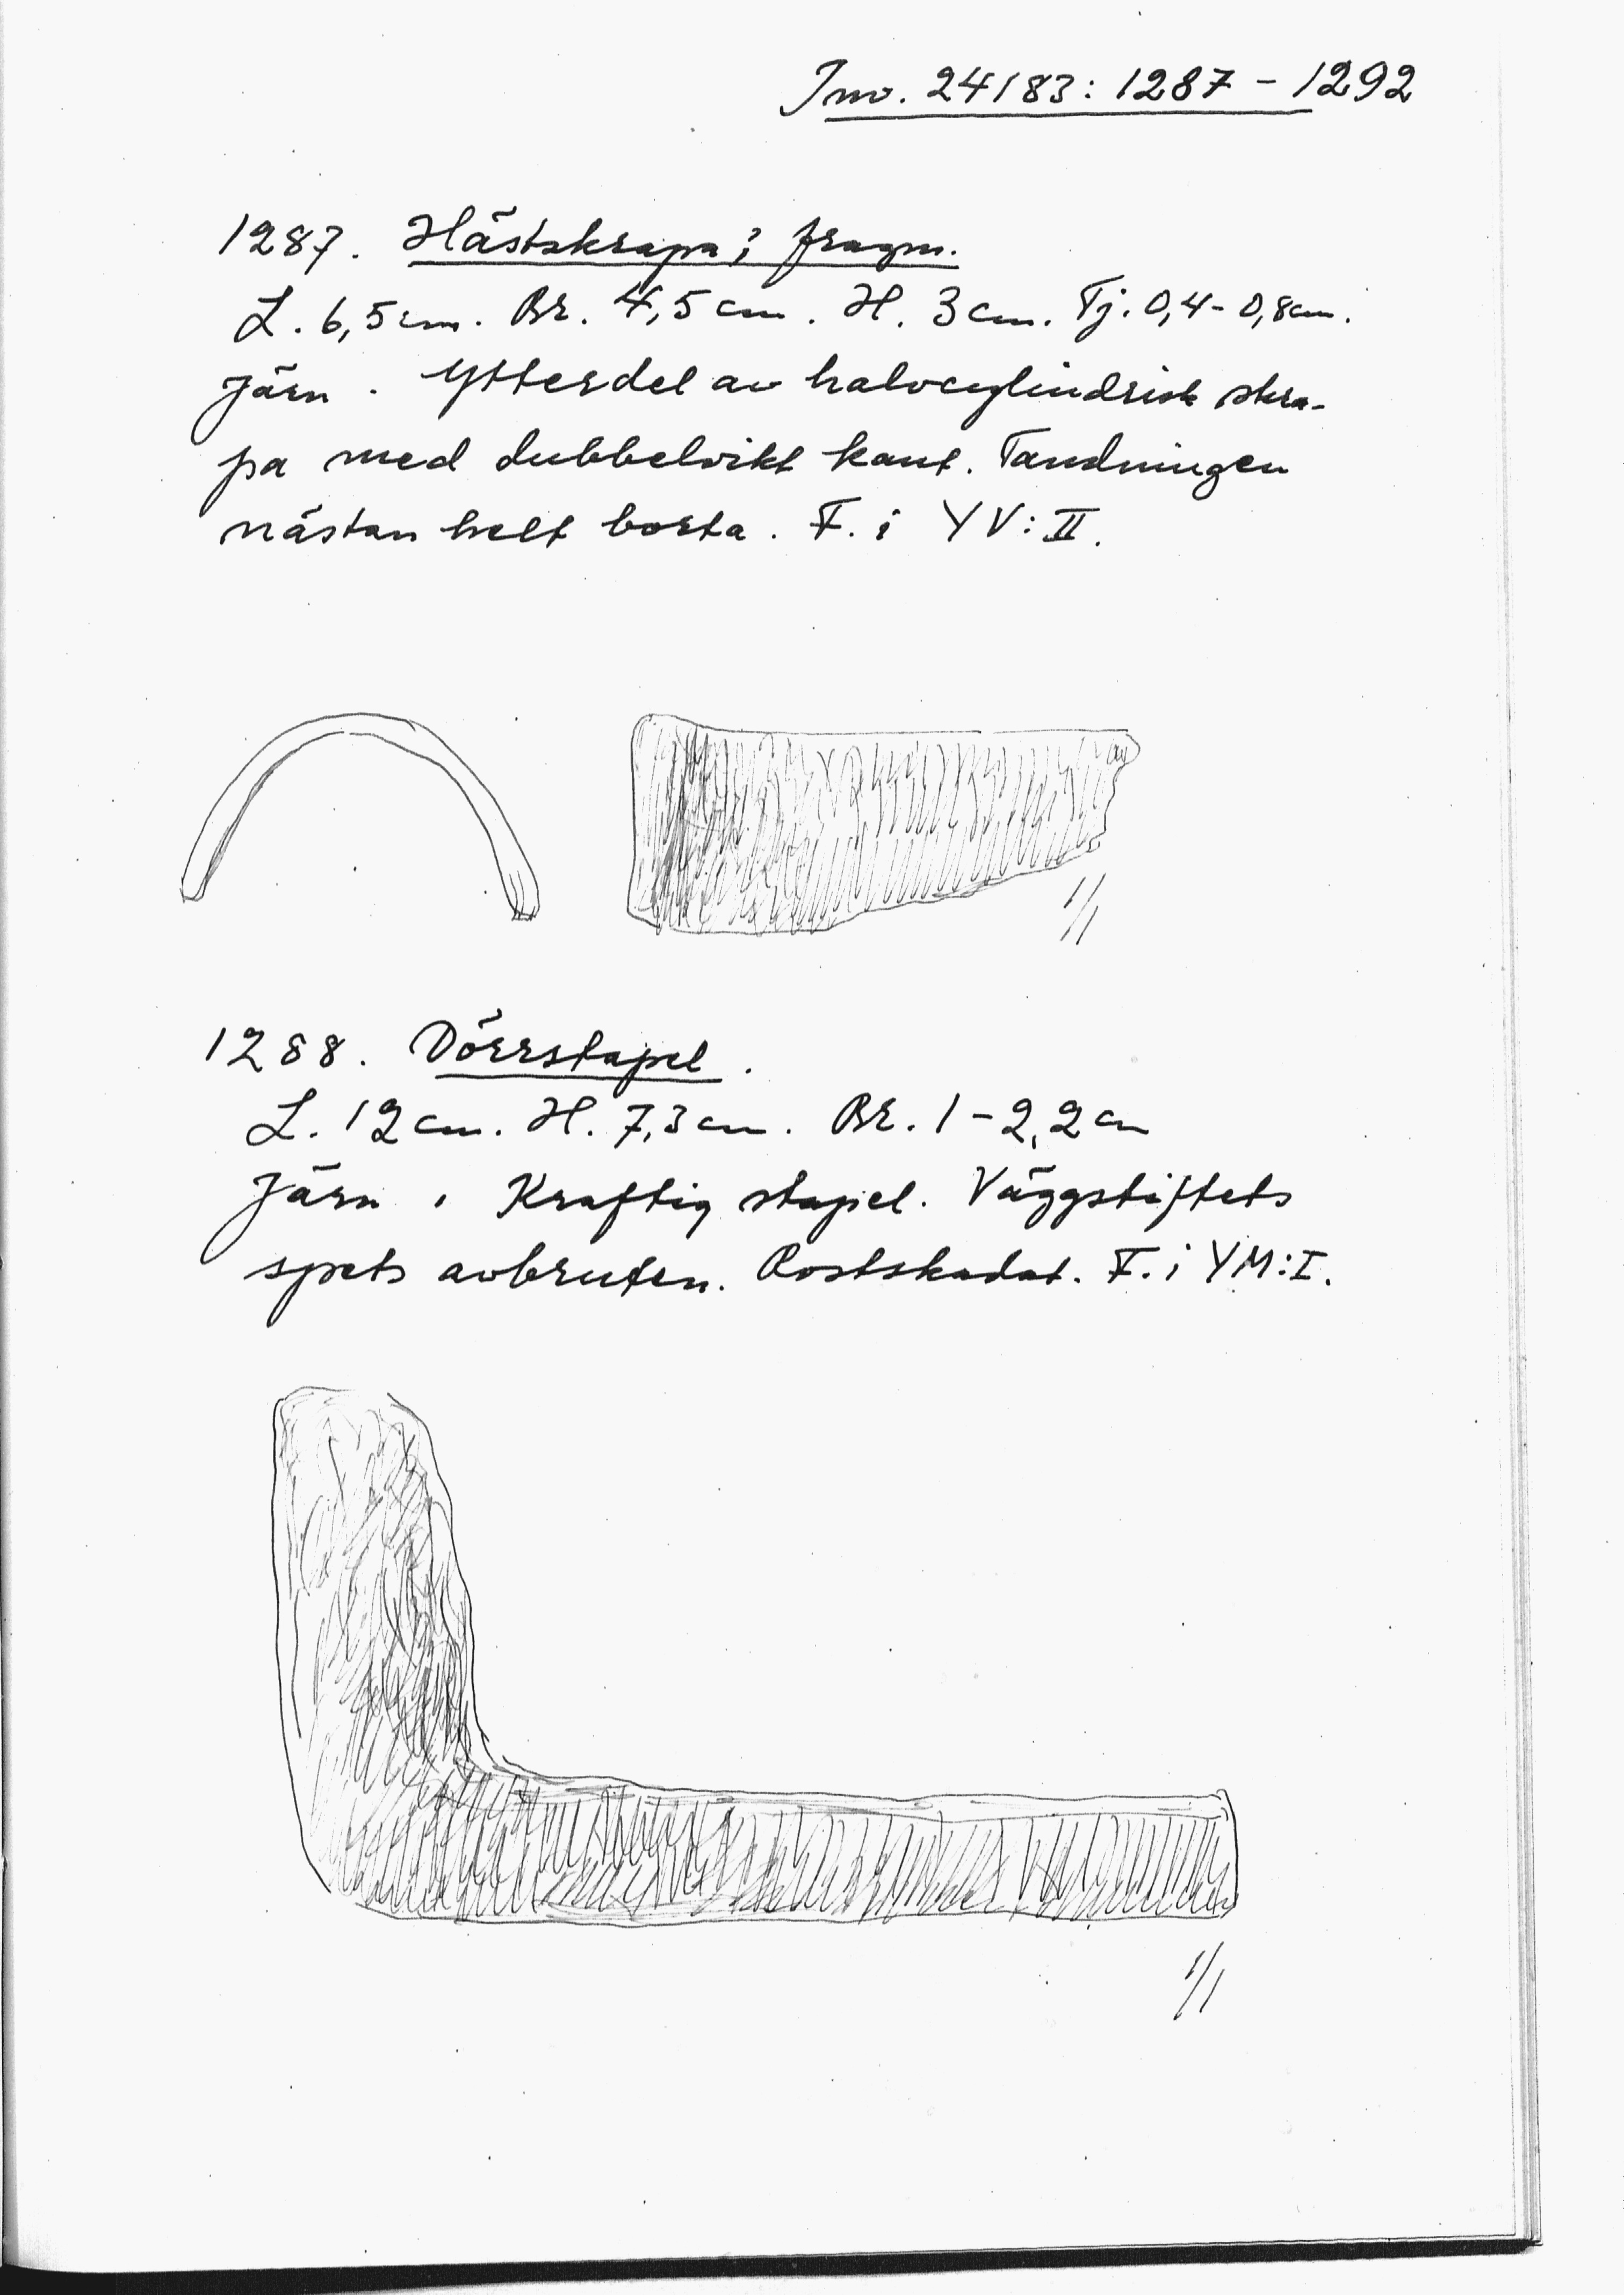 Inv. 24183: 1287 - 1292
1287. Hästskrapa; fragm.
L. 6,5 cm. Br. 4,5 cm. H. 3 cm. Tj. 0,4 - 0,8 cm.
Järn. Ytterdel av halvcylindrisk skra-
pa med dubbelvikt kant. Tandningen
nästan helt borta. F. i YV: II.
1/1
1288. Dörrstapel.
L. 12 cm. H. 7,3 cm. Br. 1 - 2,2 cm
Järn. Kraftig stapel. Väggstiftets
spets avbruten. Rostskadat. F. i YM: I.
1/1